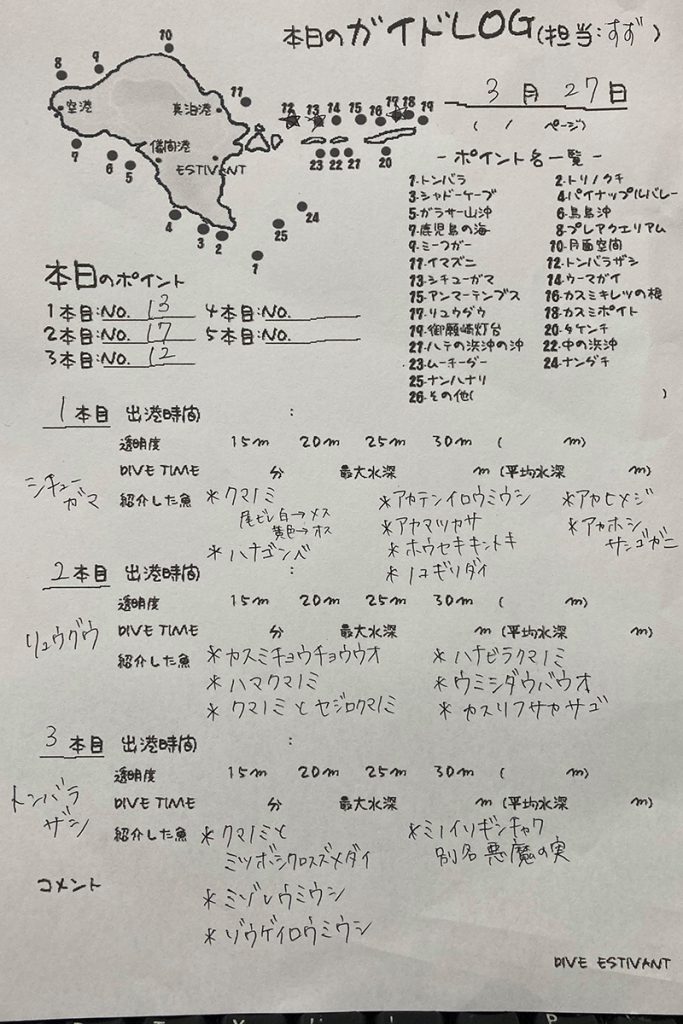 本日のガイドLOG(担当:すず)
3月27日
( / ページ)
10
9
8
空港
真泊港
11
12 13 14 15 16 17 18 19
7
6
5
儀間港
ESTIVANT
23 22 21
20
4
3
2
24
25
1
- ポイント名一覧 -
1.トンバラ 2.トリノクチ
3.シャドーケーブ 4.パイナップルバレー
5.ガラサー山沖 6.鳥島沖
7.鹿児島の海 8.プレアクエリアム
9.ミーフガー 10.月面空間
11.イマズニ 12.トンバラザシ
13.シチューガマ 14.ウーマガイ
15.アンマーテンプス 16.カスミキレツの根
17.リュウグウ 18.カスミポイト
19.御願崎灯台 20.タケンチ
21.ハテの浜沖の沖 22.中の浜沖
23.ムーチーダー 24.ナンダチ
25.ナンハナリ
26.その他( )
本日のポイント
1本目:NO. 13 4本目:NO.
2本目:NO. 17 5本目:NO.
3本目:NO. 12
1本目 出港時間 :
透明度 15m 20m 25m 30m ( m)
DIVE TIME 分 最大水深 m (平均水深 m)
シチューガマ
紹介した魚 *クマノミ *アカテンイロウミウシ *アカヒメジ
尾ビレ白→メス *アカマツカサ *アカホシサンゴガニ
黄色→オス *ホウセキキントキ
*ハナゴンベ *ノコギリダイ
2本目 出港時間 :
透明度 15m 20m 25m 30m ( m)
リュウグウ
DIVE TIME 分 最大水深 m (平均水深 m)
紹介した魚 *カスミチョウチョウウオ *ハナビラクマノミ
*ハマクマノミ *ウミシダウバウオ
*クマノミとセジロクマノミ *カスリフサカサゴ
3本目 出港時間 :
透明度 15m 20m 25m 30m ( m)
トンバラザシ
DIVE TIME 分 最大水深 m (平均水深 m)
紹介した魚 *クマノミと *ミノイソギンチャク
ミツボシクロスズメダイ 別名 悪魔の実
*ミゾレウミウシ
*ゾウゲイロウミウシ
コメント
DIVE ESTIVANT